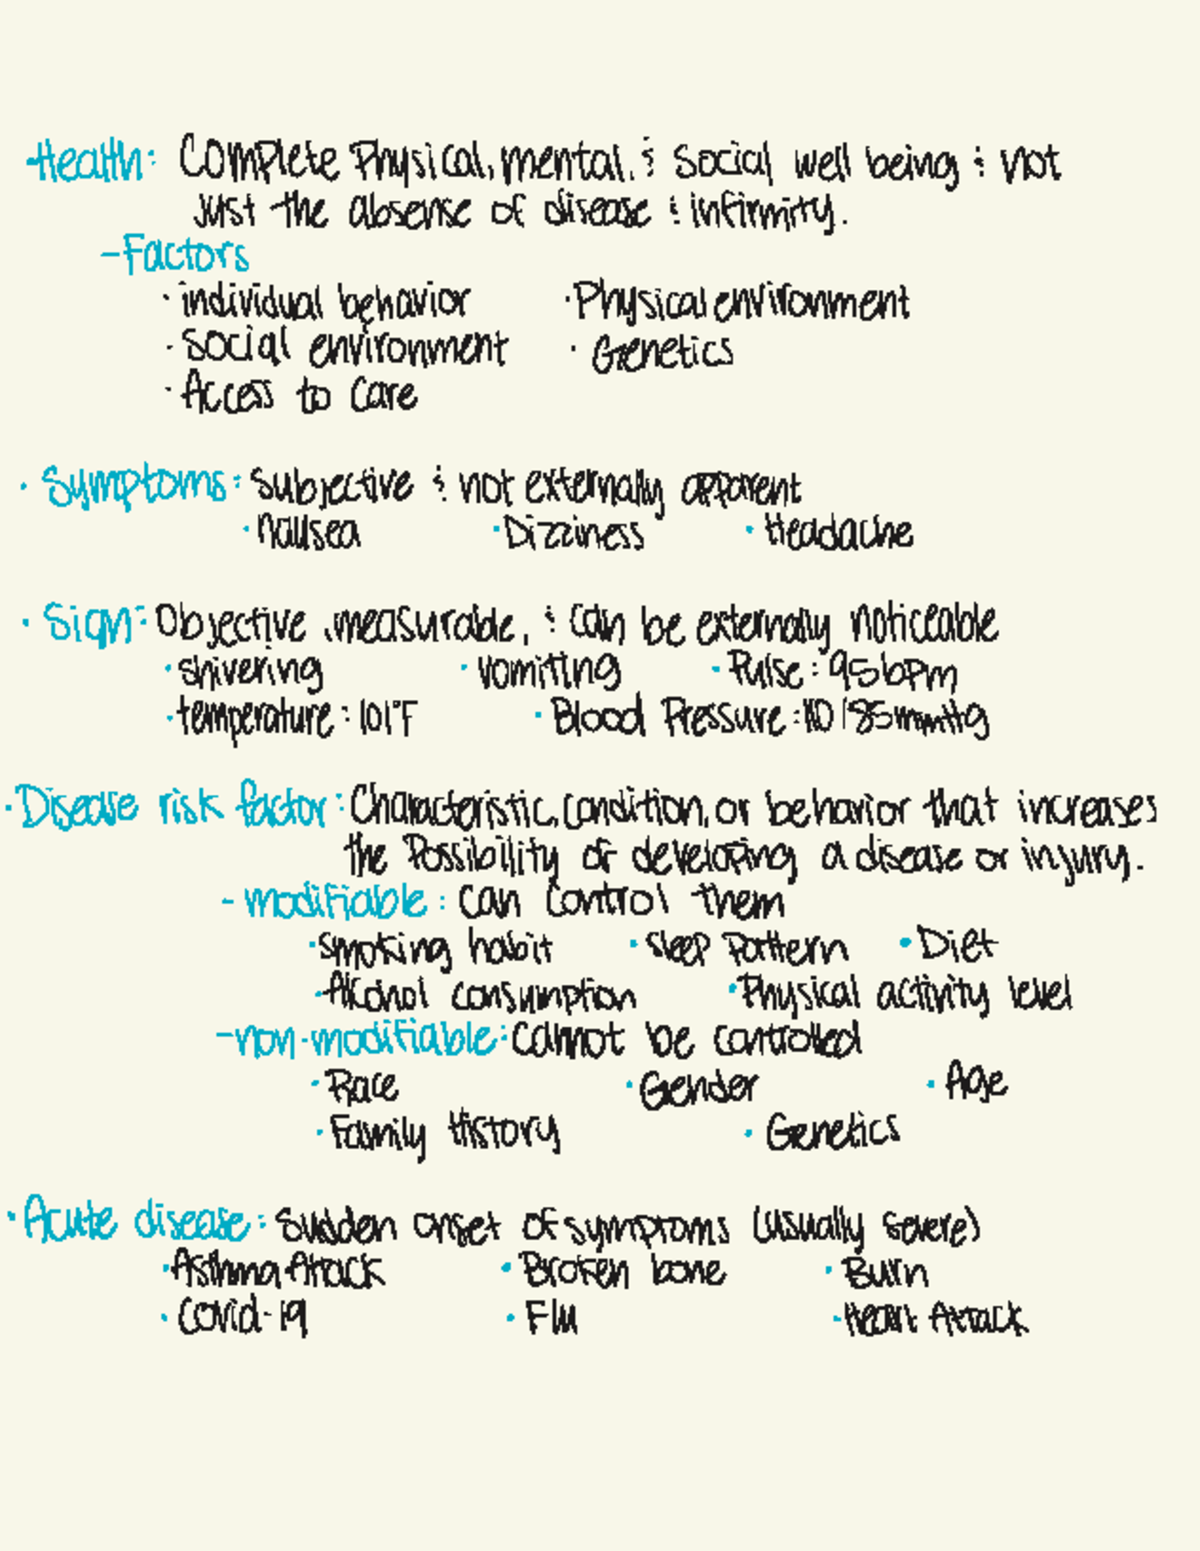 Health: Complete Physical, mental, & Social well being & not
just the absense of disease & infirmity.
-Factors
· individual behavior · Physical environment
· Social environment · Genetics
· Access to care
· Symptoms: Subjective & not externally apparent
· Nausea · Dizziness · Headache
· Sign: Objective, measurable, & can be externally noticeable
· shivering · vomiting · Pulse: 95bpm
· temperature: 101°F · Blood Pressure: 110/85mmHg
· Disease risk factor: Characteristic, condition, or behavior that increases
the Possibility of developing a disease or injury.
- modifiable: can control them
· smoking habit · sleep pattern · Diet
· Alcohol consumption · Physical activity level
- non-modifiable: cannot be controlled
· Race · Gender · Age
· Family History · Genetics
· Acute disease: Sudden onset of symptoms (usually severe)
· Asthma Attack · Broken bone · Burn
· Covid-19 · Flu · Heart Attack